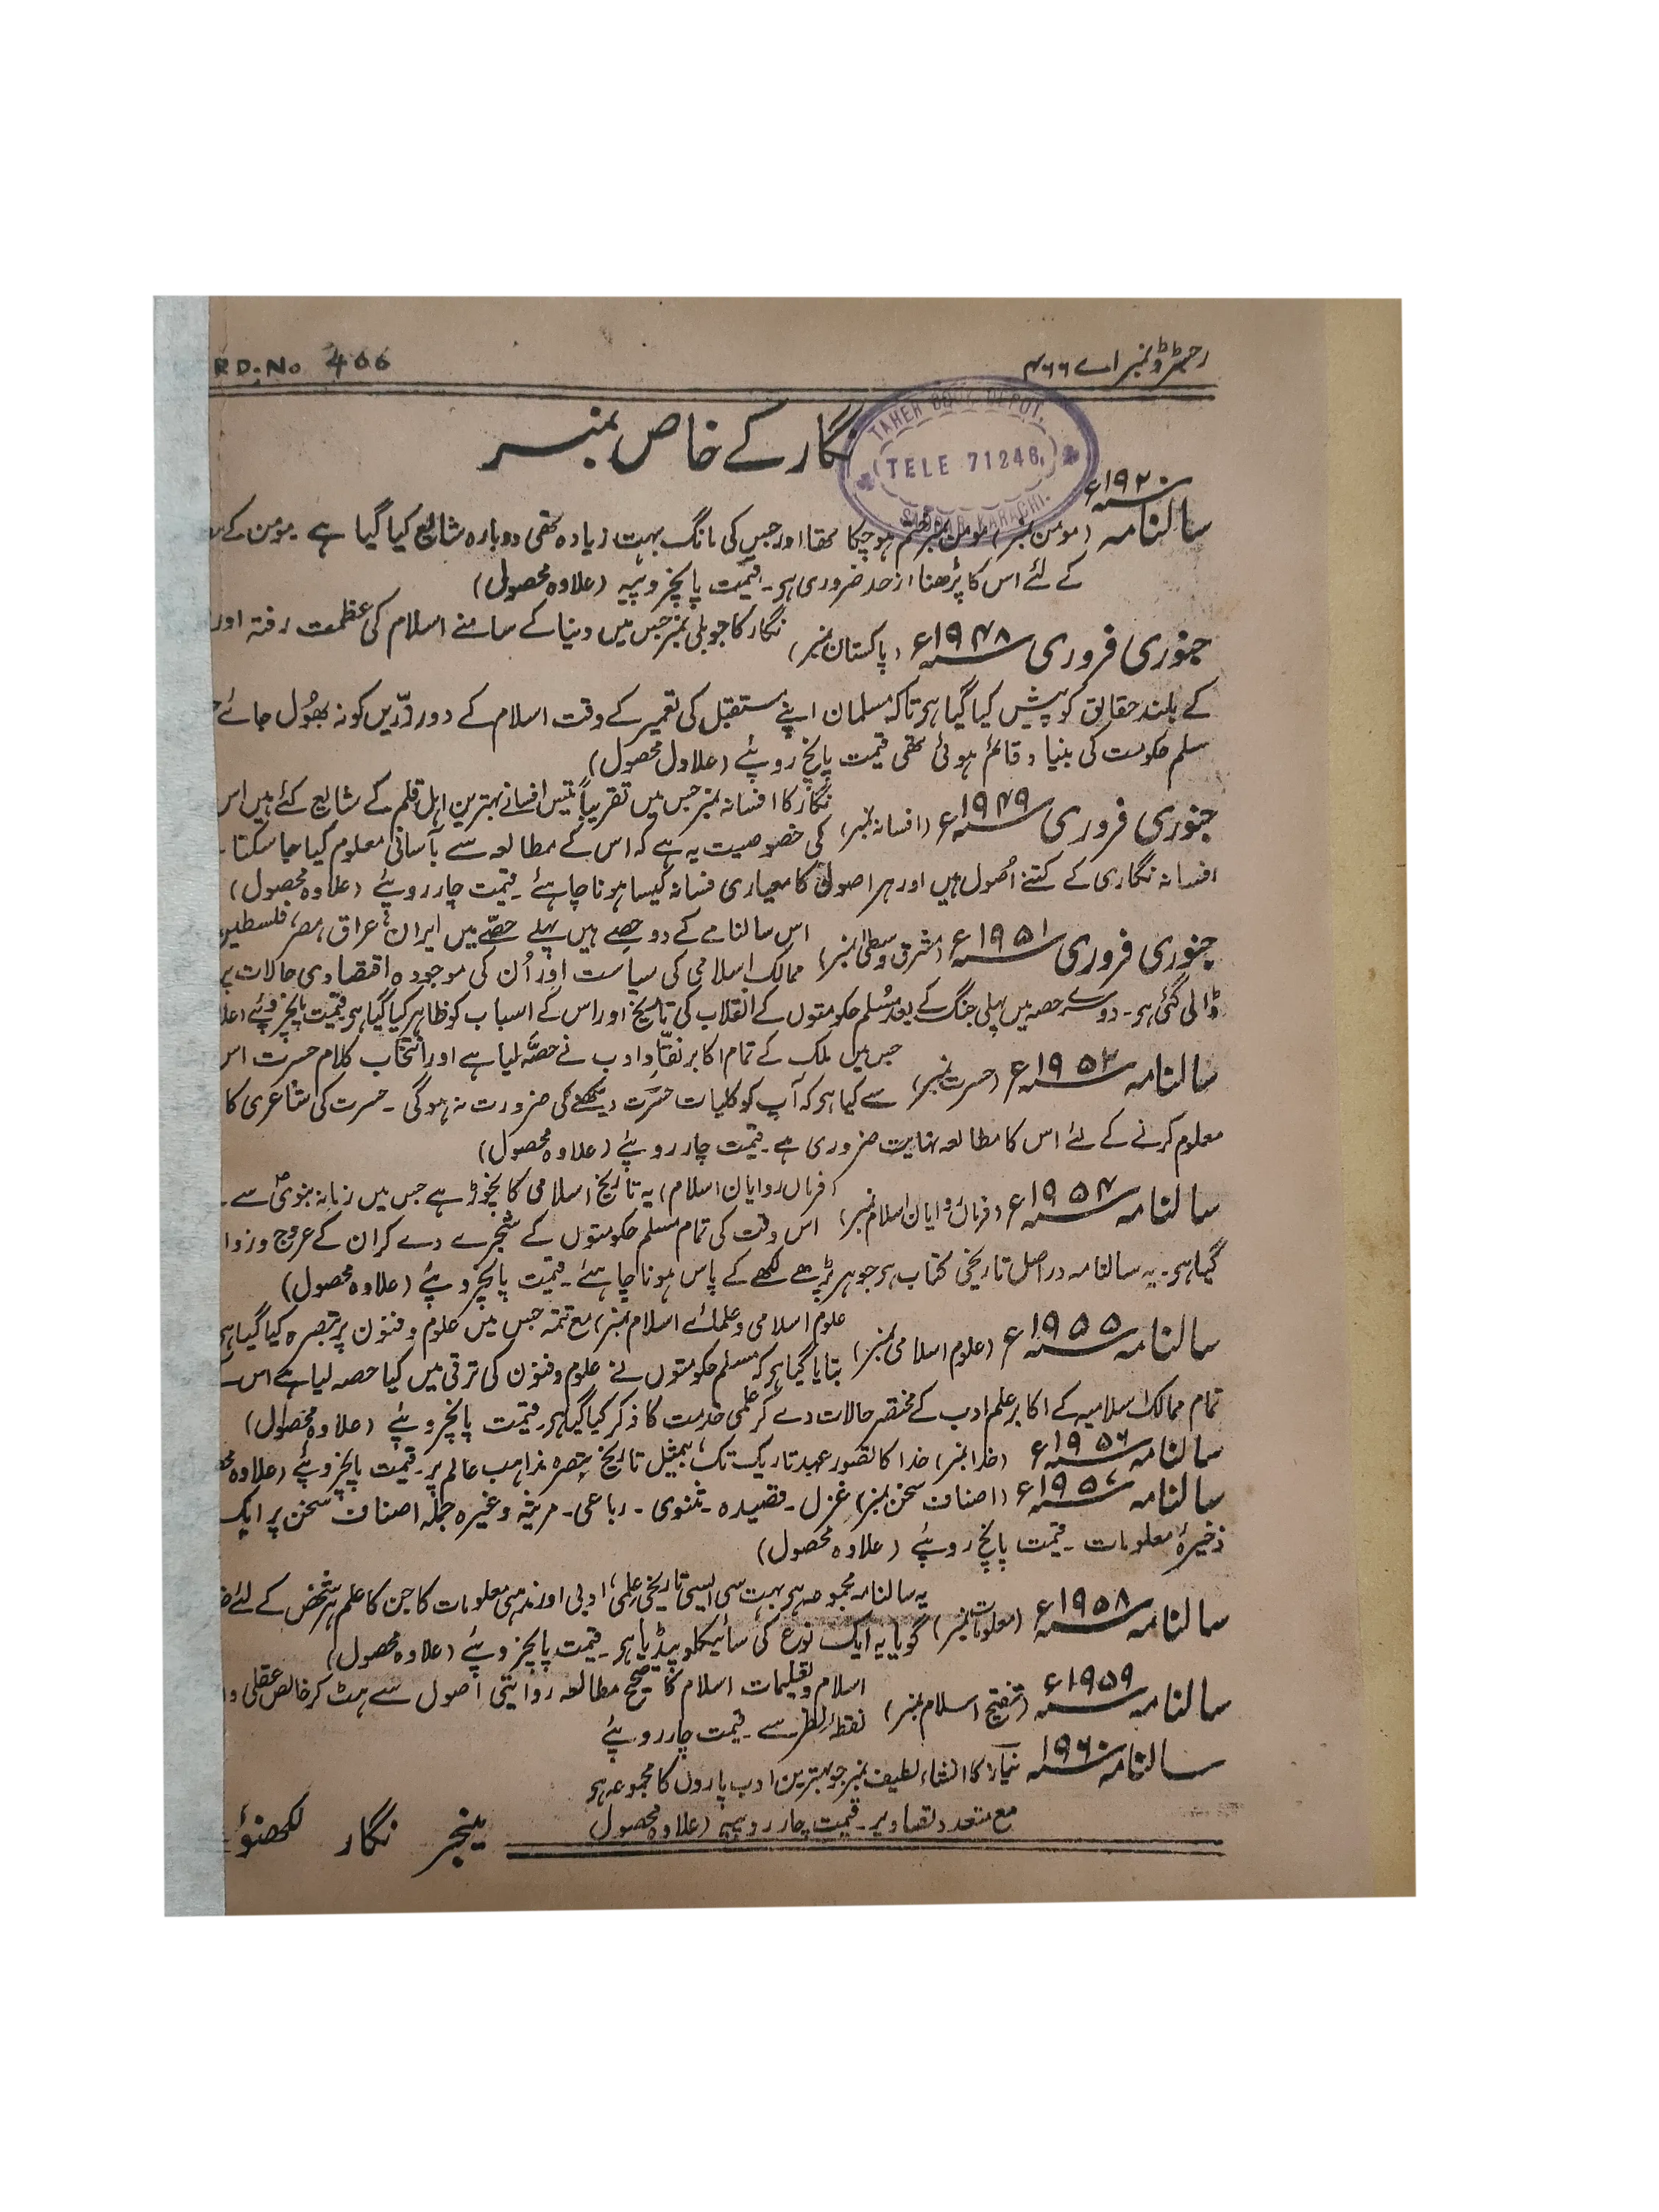 رجسٹرڈ نمبر اے ۴۶۶
RD. No 466
نگار کے خاص نمبر
TAHER BOOK DEPOT.
TELE 71246.
SADDAR KARACHI.
سالنامہ ۱۹۲۰ء (مومن نمبر) مومن نمبر ختم ہو چکا تھا اور جس کی مانگ بہت زیادہ تھی دوبارہ شایع کیا گیا ہے۔ مومن کے
کے لئے اس کا پڑھنا از حد ضروری ہے۔ قیمت پانچروپیہ (علاوہ محصول)
جنوری فروری ۱۹۴۸ء (پاکستان نمبر) نگار کا جوبلی نمبر جس میں دنیا کے سامنے اسلام کی عظمت رفتہ اور
کے بلند حقائق کو پیش کیا گیا ہے تاکہ مسلمان اپنے مستقبل کی تعمیر کے وقت اسلام کے دور زرّیں کو نہ بھول جائے
مسلم حکومت کی بنیاد قائم ہوئی تھی قیمت پانچ روپئے (علاول محصول)
جنوری فروری ۱۹۴۹ء (افسانہ نمبر) نگار کا افسانہ نمبر جس میں تقریباً تیس افسانے بہترین اہل قلم کے شایع کئے ہیں اس
کی خصوصیت یہ ہے کہ اس کے مطالعہ سے بآسانی معلوم کیا جا سکتا
افسانہ نگاری کے کتنے اُصول ہیں اور ہر اصول کا معیاری فسانہ کیسا ہونا چاہئے۔ قیمت چار روپئے (علاوہ محصول)
جنوری فروری ۱۹۵۱ء (مشرق وسطیٰ نمبر) اس سالنامے کے دو حصے ہیں پہلے حصّے میں ایران، عراق، مصر، فلسطین
ممالک اسلامی کی سیاست اور اُن کی موجودہ اقتصادی حالات پر
ڈالی گئی ہے۔ دوسرے حصہ میں پہلی جنگ کے بعد مُسلم حکومتوں کے انقلاب کی تاریخ اور اس کے اسباب کو ظاہر کیا گیا ہے قیمت پانچروپئے
سالنامہ ۱۹۵۲ء (حسرت نمبر) جس میں ملک کے تمام اکابر نقّاد ادب نے حصّہ لیا ہے اور انتخاب کلام حسرت اس
سے کیا ہے کہ آپ کو کلیات حسرت دیکھنے کی ضرورت نہ ہوگی۔ حسرت کی شاعری کا
معلوم کرنے کے لئے اس کا مطالعہ نہایت ضروری ہے۔ قیمت چار روپئے (علاوہ محصول)
سالنامہ ۱۹۵۴ء (فرمانروایان اسلام نمبر) (فرماں روایان اسلام) یہ تاریخ اسلامی کا نچوڑ ہے جس میں زمانہ نبویؐ سے
اس وقت کی تمام مسلم حکومتوں کے شجرے دے کر ان کے عروج و زوا
گیا ہے۔ یہ سالنامہ دراصل تاریخی کتاب ہے جو ہر پڑھے لکھے کے پاس ہونا چاہئے۔ قیمت پانچروپئے (علاوہ محصول)
سالنامہ ۱۹۵۵ء (علوم اسلامی نمبر) علوم اسلامی و علمائے اسلام نمبر، مع تتمہ جس میں علوم و فنون پر تبصرہ کیا گیا ہے
بتایا گیا ہے کہ مسلم حکومتوں نے علوم و فنون کی ترقی میں کیا حصہ لیا ہے اس
تمام ممالک اسلامیہ کے اکابر علم ادب کے مختصر حالات دے کر علمی خدمت کا ذکر کیا گیا ہے۔ قیمت پانچروپئے (علاوہ محصول)
سالنامہ ۱۹۵۶ء (خدا نمبر) خدا کا تصور عہد تاریک تک، بمثیل تاریخ تبصرہ مذاہب عالم پر۔ قیمت پانچروپئے (علاوہ
سالنامہ ۱۹۵۷ء (اصناف سخن نمبر) غزل۔ قصیدہ۔ مثنوی۔ رباعی۔ مرثیہ وغیرہ جملہ اصناف سخن پر ایک
ذخیرۂ معلومات۔ قیمت پانچ روپئے (علاوہ محصول)
سالنامہ ۱۹۵۸ء (معلومات نمبر) یہ سالنامہ مجموعہ ہے بہت سی ایسی تاریخی علمی، ادبی اور مذہبی معلومات کا جن کا علم ہر شخص کے لئے
گویا یہ ایک نوع کی سائیکلوپیڈیا ہے۔ قیمت پانچروپئے (علاوہ محصول)
سالنامہ ۱۹۵۹ء (تنقیح اسلام نمبر) اسلام و تعلیمات اسلام کا صحیح مطالعہ روایتی اصول سے ہٹ کر خالص عقلی و
نقطۂ نظر سے۔ قیمت چار روپئے
سالنامہ ۱۹۶۰ نیاز کا انشاء لطیف نمبر جو بہترین ادب پاروں کا مجموعہ ہے
مع متعدد تصاویر۔ قیمت چار روپیہ (علاوہ محصول)
مینجر نگار لکھنؤ